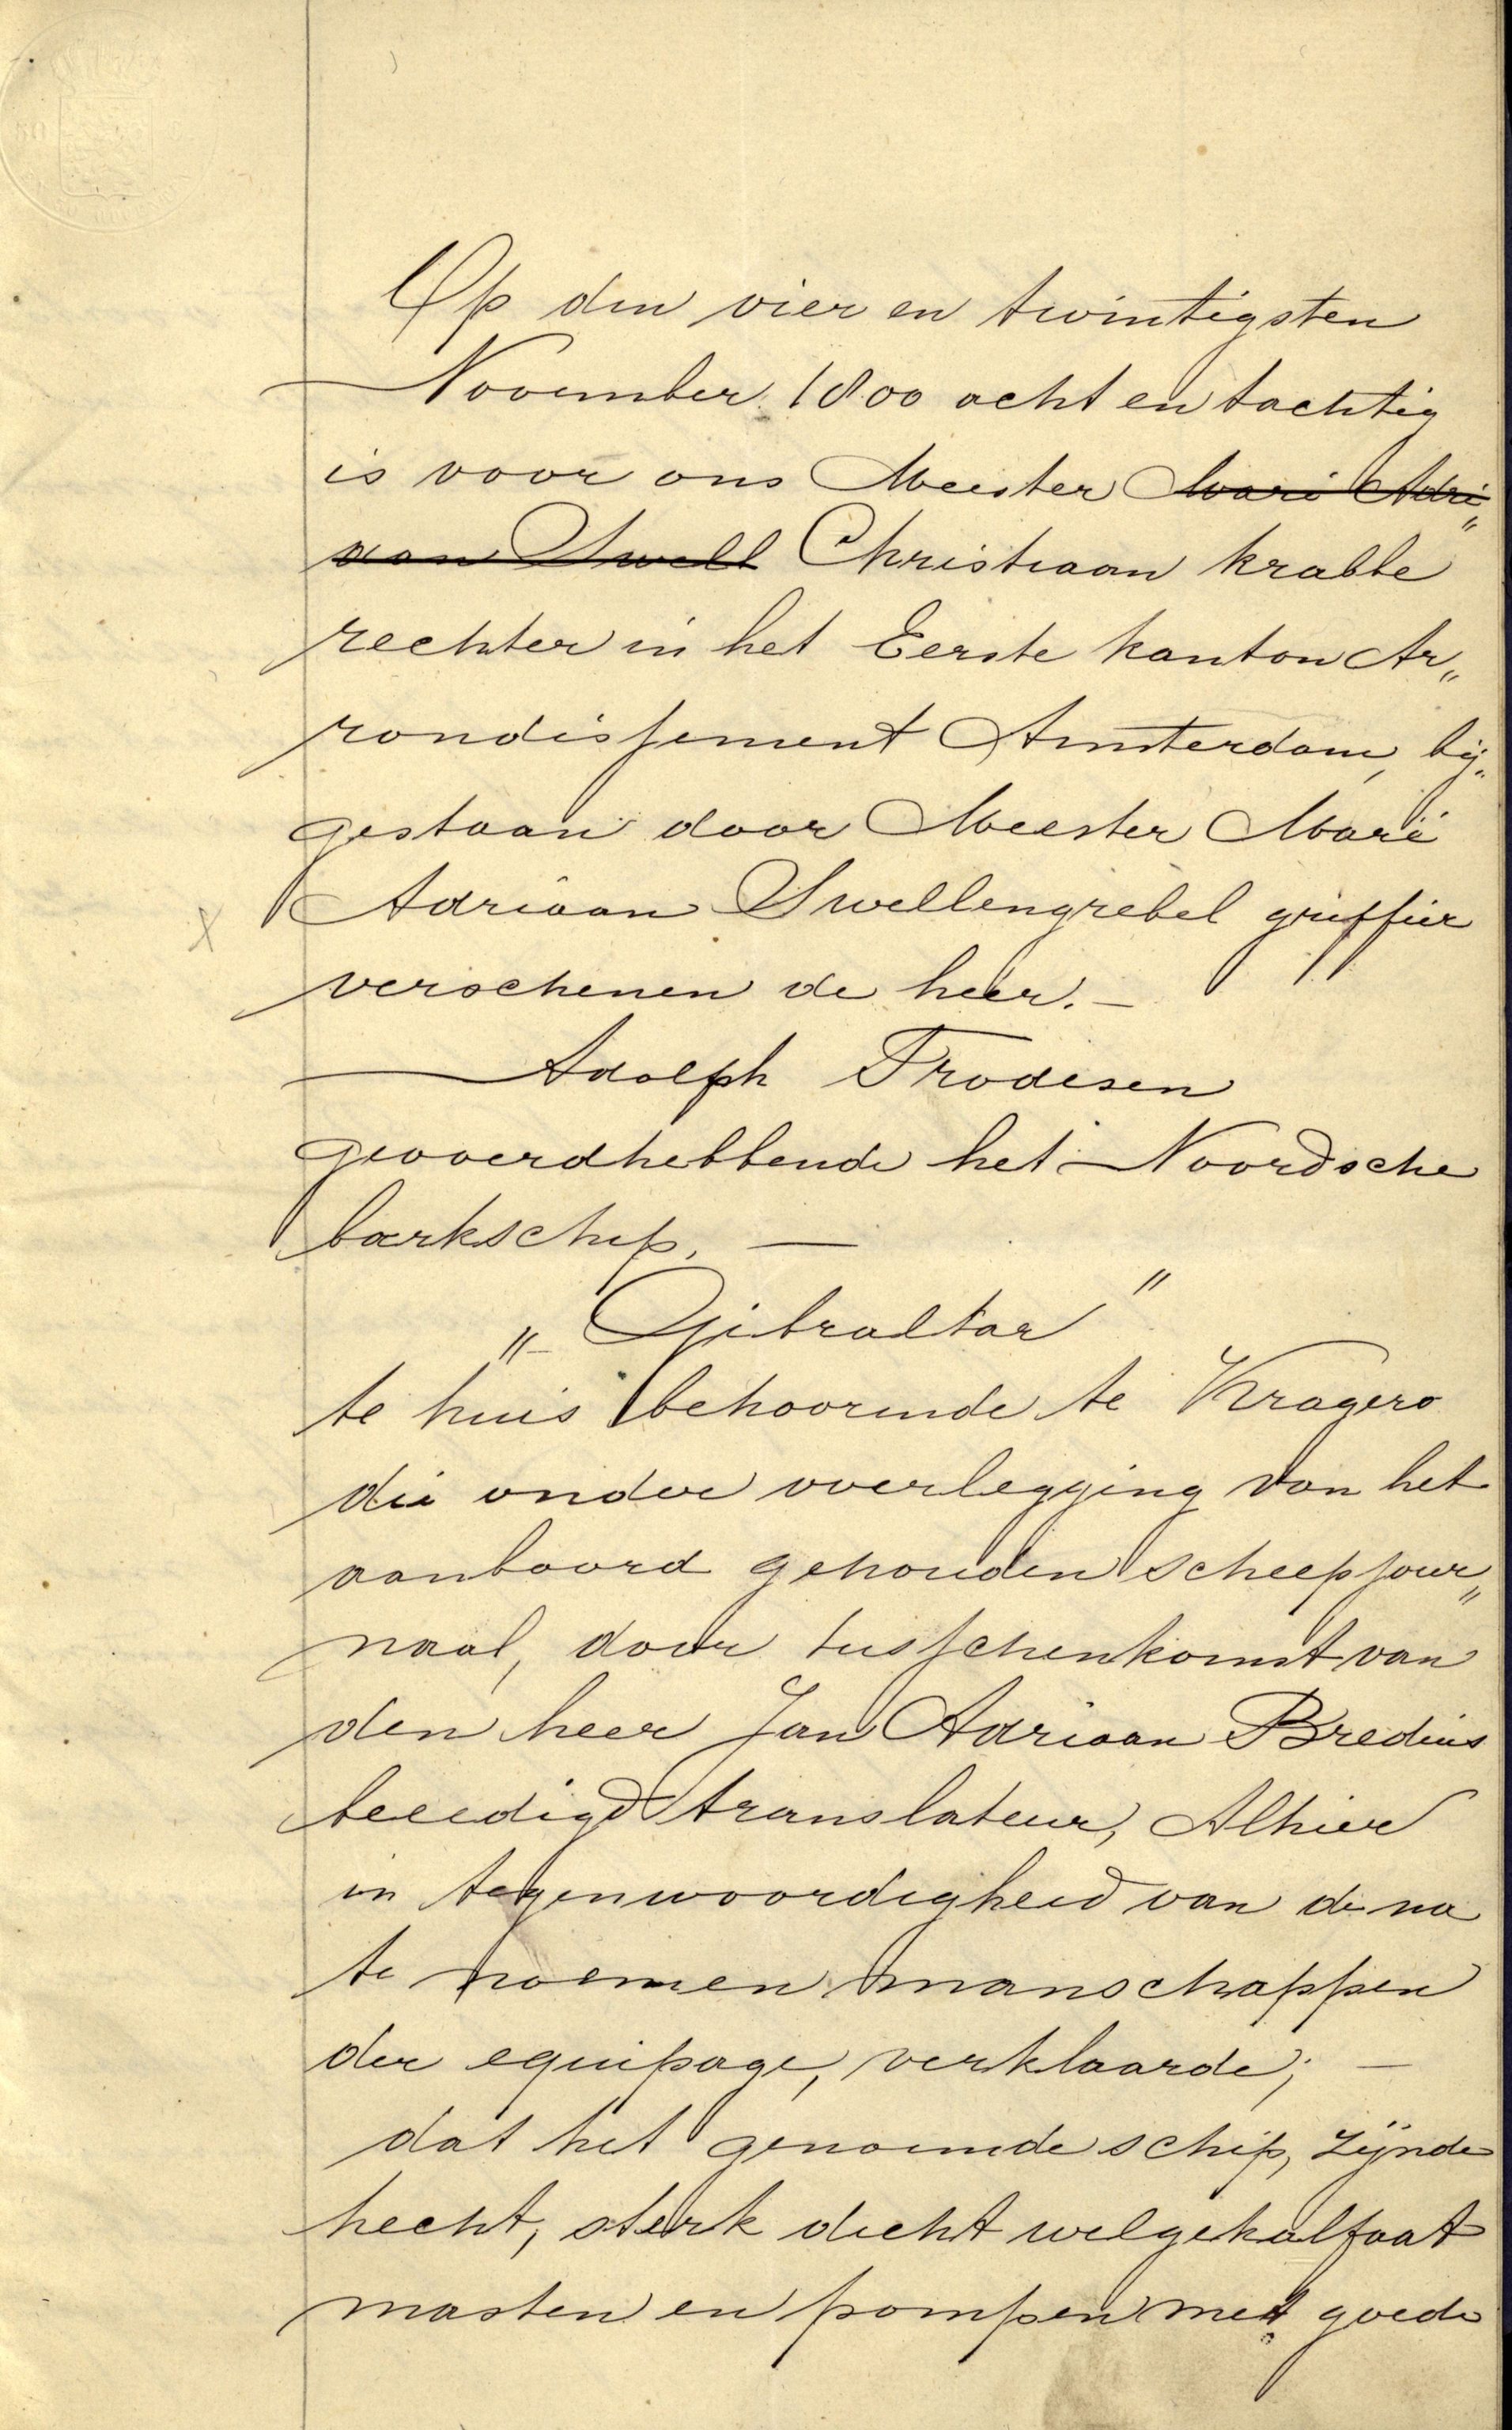 Op den vier en twintigsten
November 1800 acht en tachtig
is voor ons Meester Mari Adri„
aan Swell Christiaan Krabbe
rechter in het Eerste kanton Ar„
rondissement Amsterdam, bij„
gestaan door Meester Mari
Adriaan Swellengrebel griffier
verschenen de heer. —
Adolph Frodesen
gevoerdhebbende het Noordsche
barkschip. —
„ Gibraltar "
te huis behoorende te Kragero
die onder overlegging van het
aanboord gehouden scheepjour„
naal, door tusschenkomst van
den heer Jan Adriaan Bredius
beeedigd translateur, Alhier
in tegenwoordigheid van de na
te noemen manschappen
der equipage, verklaarde; —
dat het genoemde schip, zijnde
hecht, sterk dicht welgekalfaat
masten en pompen met goede